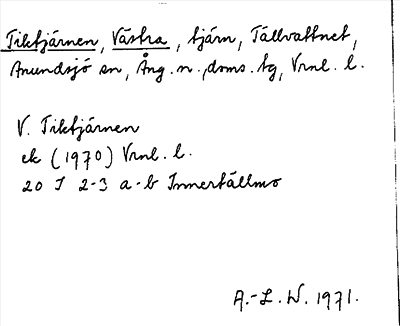 Tiktjärnen, Västra, tjärn, Tällvattnet,
Anundsjö sn, Ång. n., doms. tg, Vrnl. l.
V. Tiktjärnen
ek (1970) Vrnl. l.
20 I 2-3 a-b Innertällmo
A.-L. W. 1971.